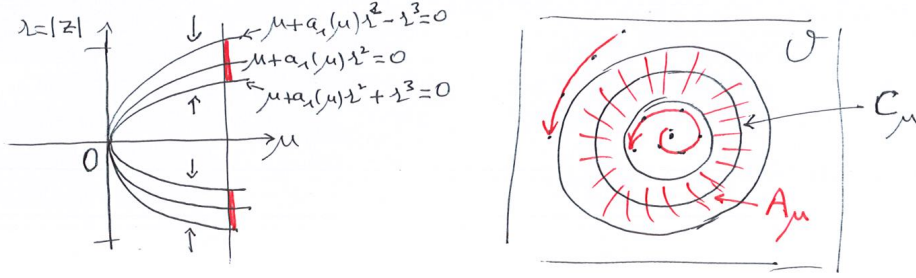 r=|z|
μ+a₁(μ)r²-r³=0
μ+a₁(μ)r²=0
μ+a₁(μ)r²+r³=0
0
μ
𝒱
C_μ
A_μ